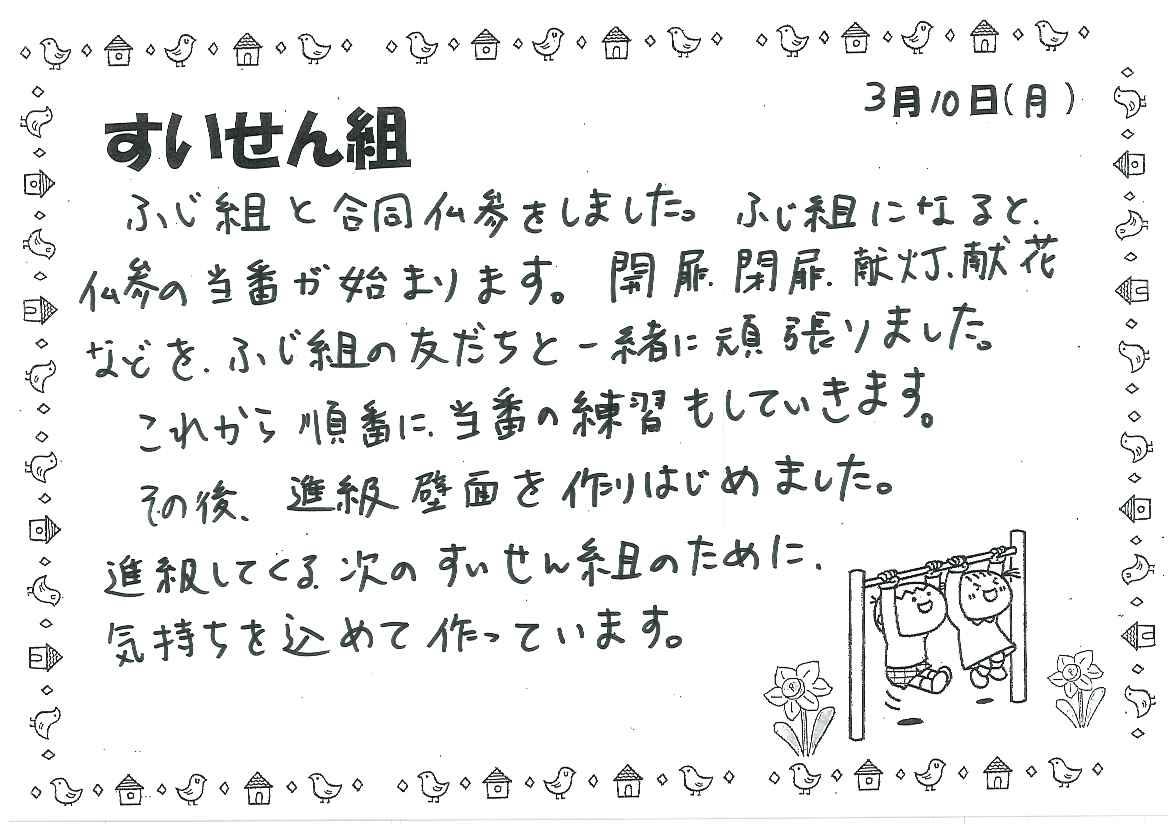 3月10日(月)
すいせん組
ふじ組と合同仏参をしました。ふじ組になると、
仏参の当番が始まります。開扉、閉扉、献灯、献花
などを、ふじ組の友だちと一緒に頑張りました。
これから順番に、当番の練習もしていきます。
その後、進級壁面を作りはじめました。
進級してくる、次のすいせん組のために、
気持ちを込めて作っています。